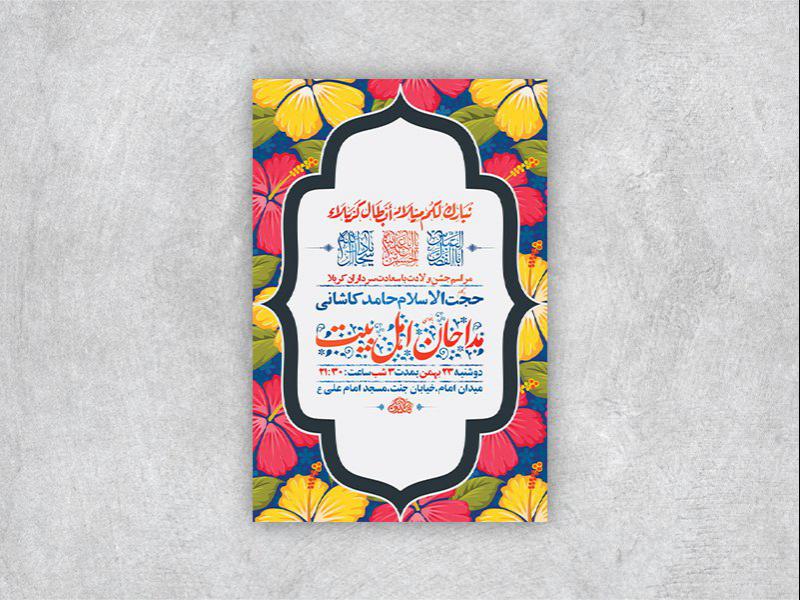 نبارك لكم ميلاد أبطال كربلاء
مراسم جشن ولادت با سعادت سرداران کربلا
حجت الاسلام حامد کاشانی
مداحان اهل بیت
دوشنبه ۲۳ بهمن بمدت ۳ شب ساعت: ۲۱:۳۰
میدان امام، خیابان جنت، مسجد امام علی ع